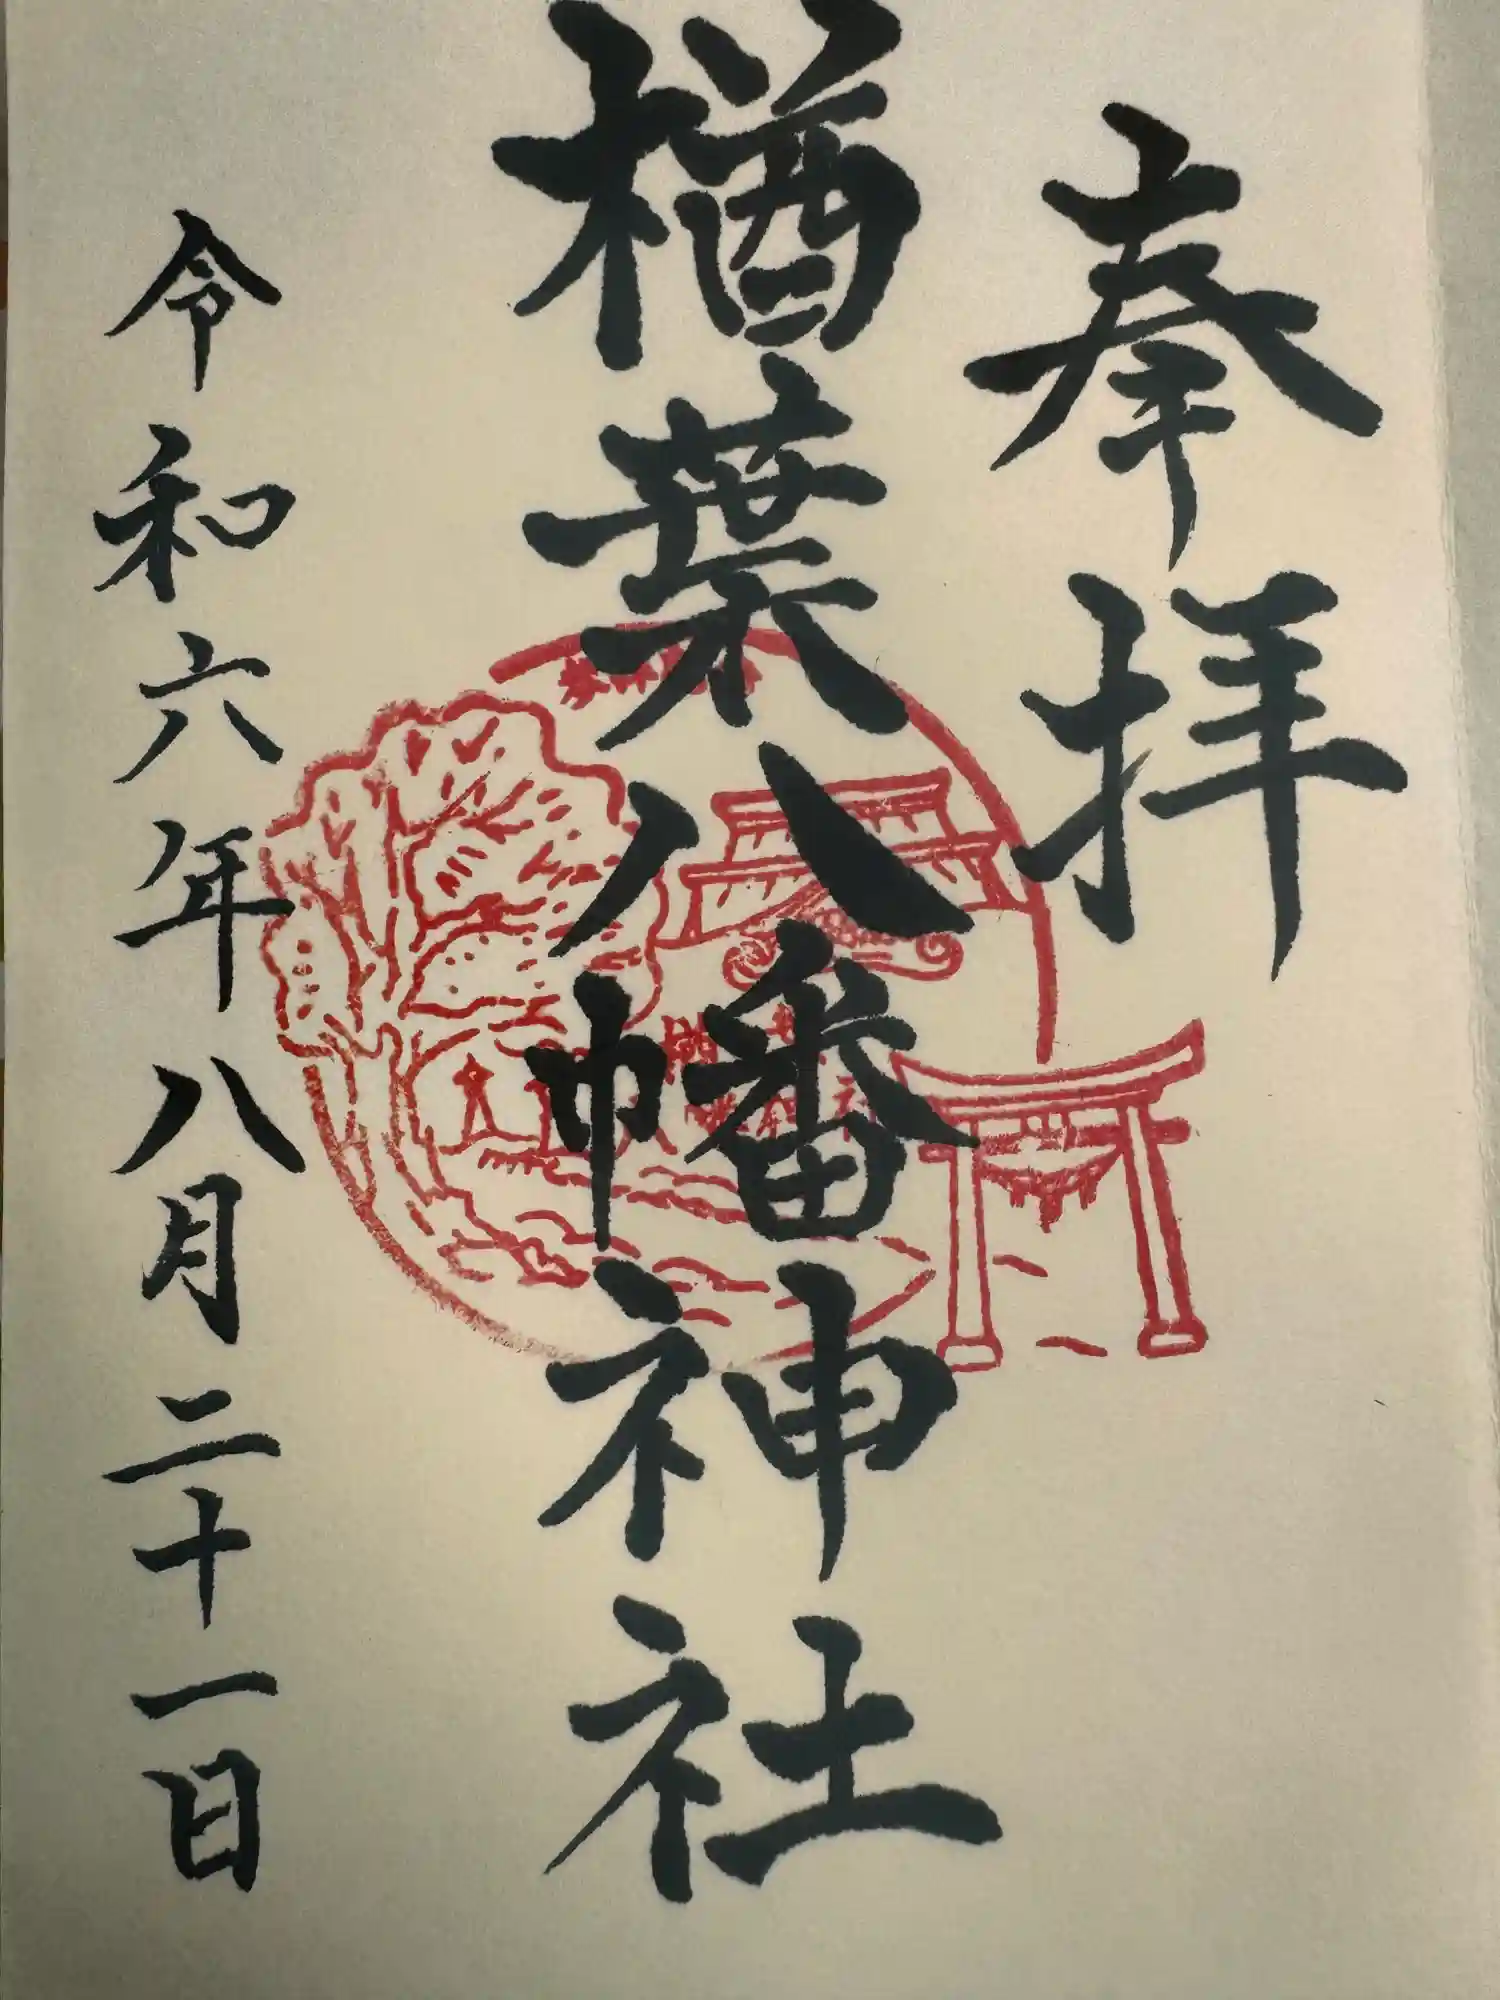 奉拝
楢葉八幡神社
令和六年八月二十一日